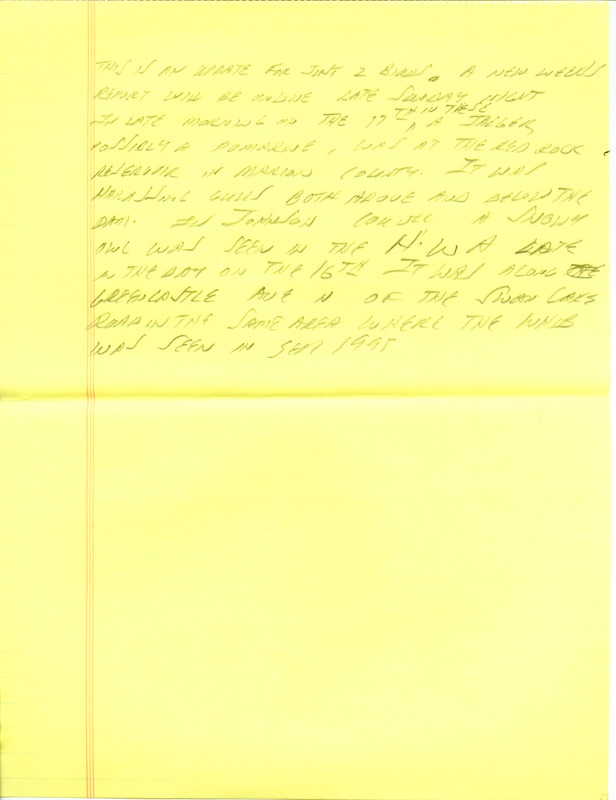 THIS IS AN UPDATE FOR JUST 2 BIRDS. A NEW WEEK'S
REPORT WILL BE ONLINE LATE SUNDAY NIGHT
IN LATE MORNING ON THE 17TH A JAEGER,
POSSIBLY A POMARINE, WAS AT THE RED ROCK
RESERVOIR IN MARION COUNTY. IT WAS
HARASSING GULLS BOTH ABOVE AND BELOW THE
DAM. IN JOHNSON A SNOWY
OWL WAS SEEN IN THE H.W.A LATE
IN THE DAY ON THE 16TH IT WAS ALONG
GREENCASTLE AVE N OF THE SWAN LAKE
ROAD IN THE SAME AREA WHERE THE
WAS SEEN IN SEP 1995